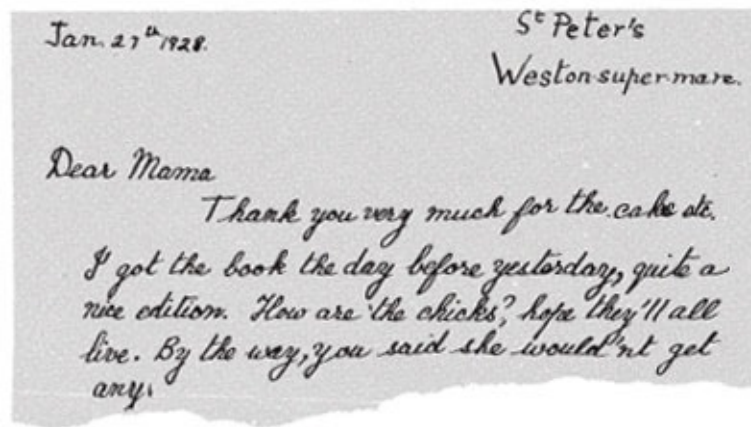 Jan. 27th 1928.
St Peter's
Weston-super-mare.
Dear Mama
Thank you very much for the cake etc.
I got the book the day before yesterday, quite a
nice edition. How are the chicks? hope they'll all
live. By the way, you said she would'nt get
any.